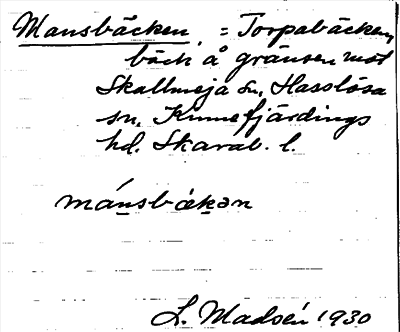 Mansbäcken, = Torpabäcken,
bäck å gränsen mot
Skallmeja sn, Hasslösa
sn, Kinnefjärdings
hd. Skarab. l.
mánsbäkən
L. Madsén 1930